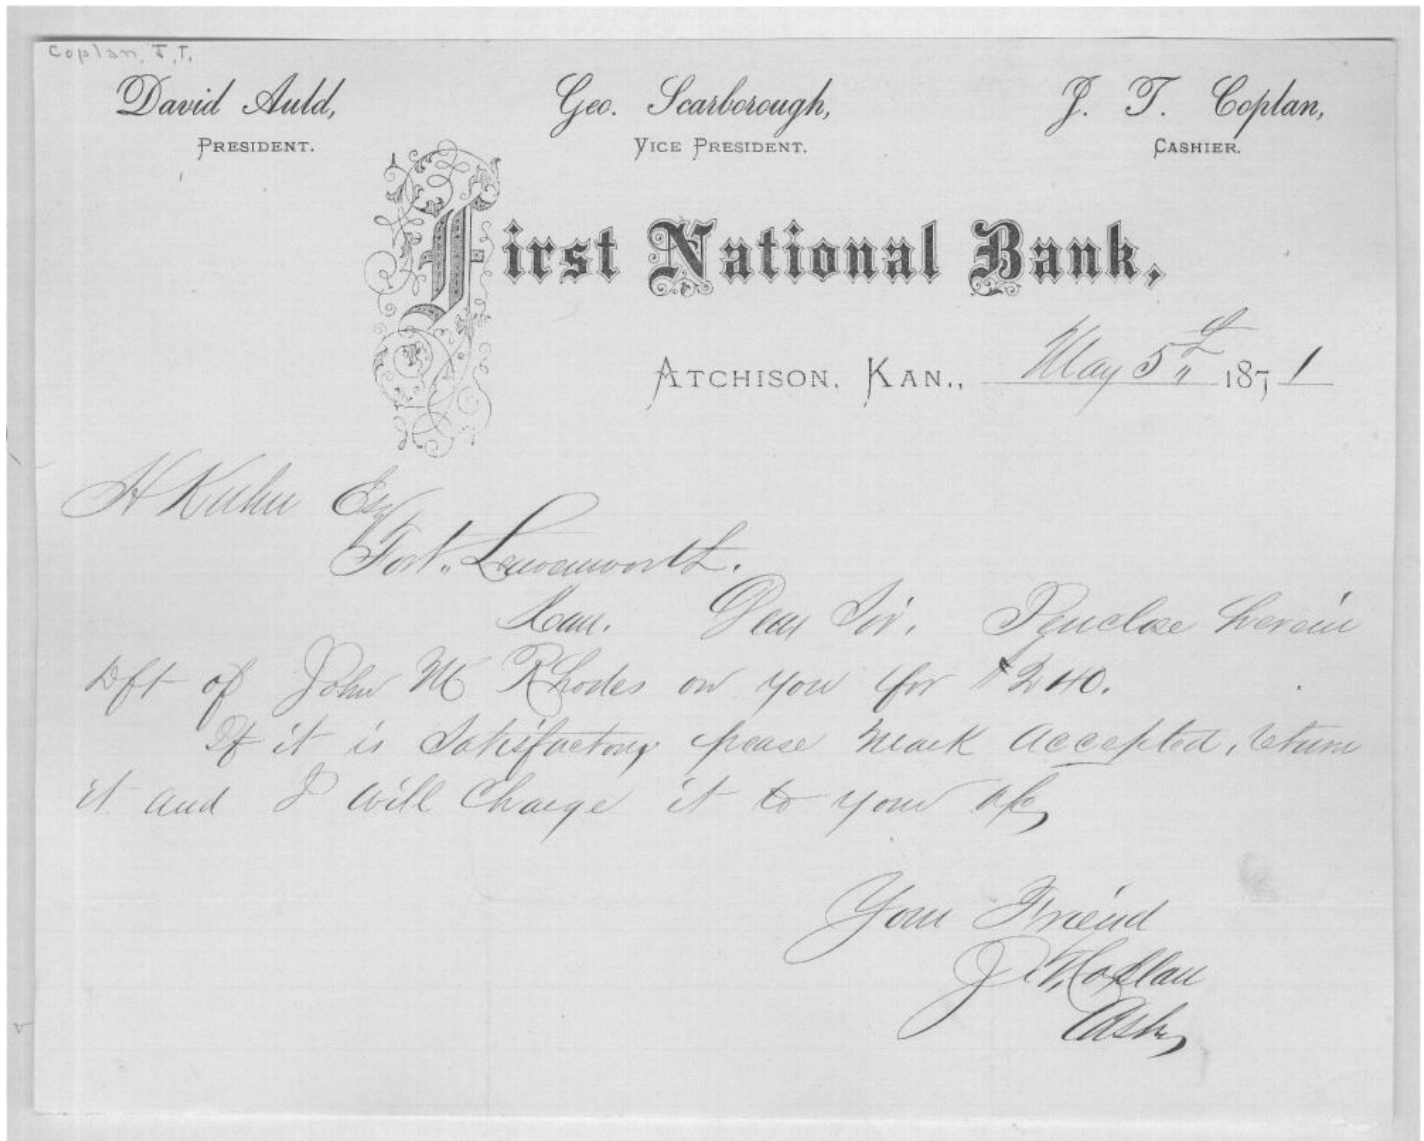 Coplan, J,T,
David Auld, Geo. Scarborough, J. T. Coplan,
PRESIDENT. VICE PRESIDENT. CASHIER.
First National Bank,
ATCHISON, KAN., May 5th 1871
H Kuhn Esq
Fort. Leavenworth.
Kan. Dear Sir. I enclose herein
Dft of John M Rhodes on you for $240.
If it is Satisfactory please mark accepted, return
it and I will Charge it to your a/c,
Your Friend
J. T. Coplan
Cash,